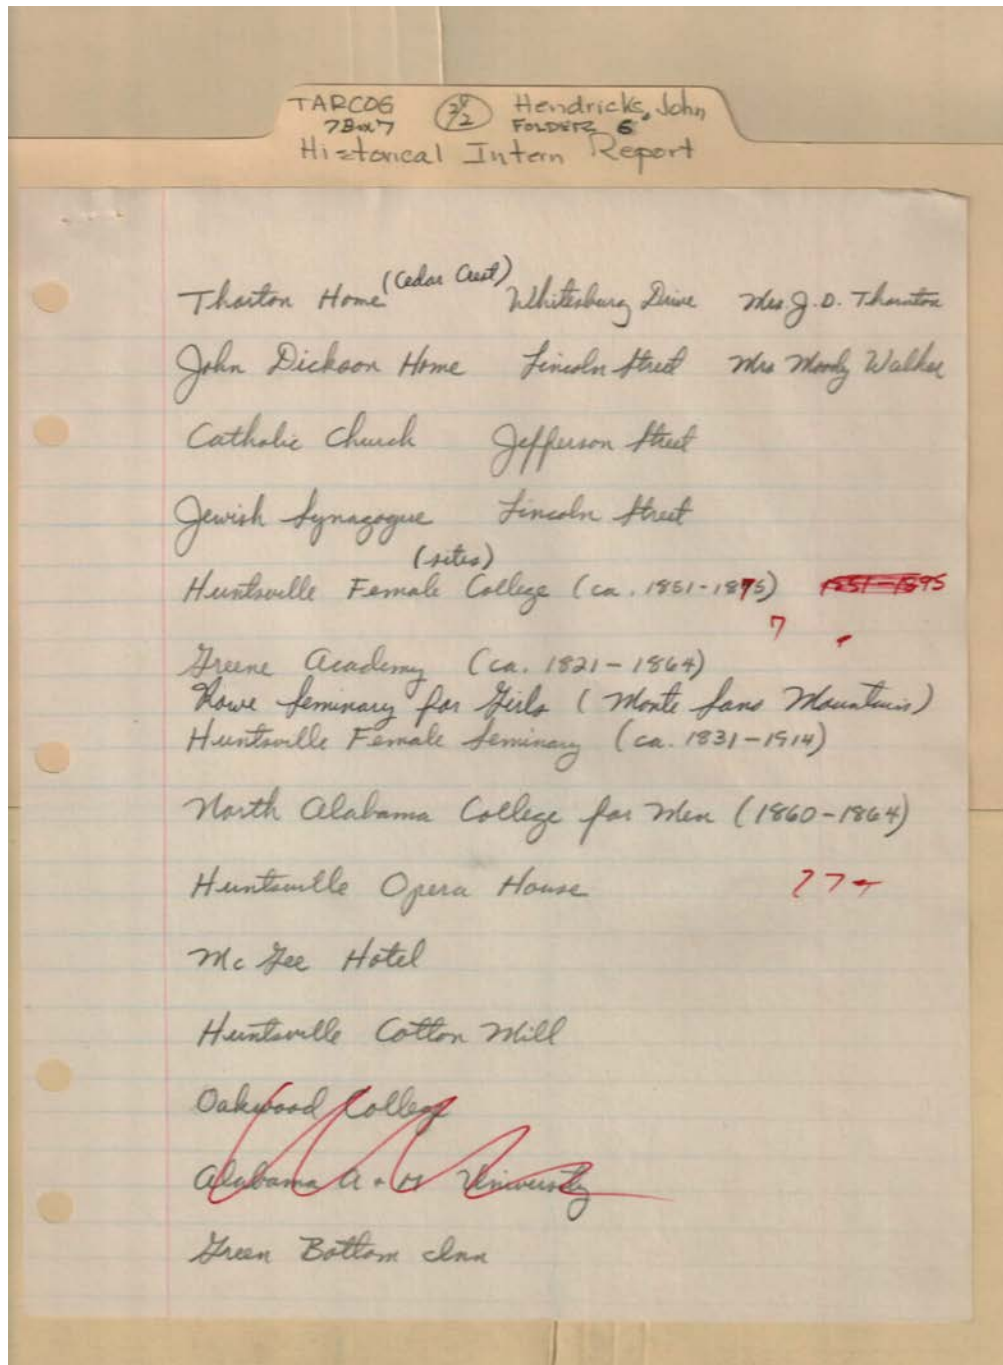 TARCOG Hendricks, John
FOLDER 6
Historical Intern Report
(Cedar Crest)
Tharton Home Whitesburg Drive Mrs J. D. Thornton
John Dickson Home Lincoln Street Mrs Moody Walker
Catholic Church Jefferson Street
Jewish Synagogue Lincoln Street
(sites)
Huntsville Female College (ca. 1851-1875) 1851-1895
7
Greene Academy (ca. 1821-1864)
Rowe Seminary for Girls (Monte Sano Mountain)
Huntsville Female Seminary (ca. 1831-1914)
North Alabama College for Men (1860-1864)
Huntsville Opera House
McGee Hotel
Huntsville Cotton Mill
Oakwood College
Alabama A + M University
Green Bottom Inn